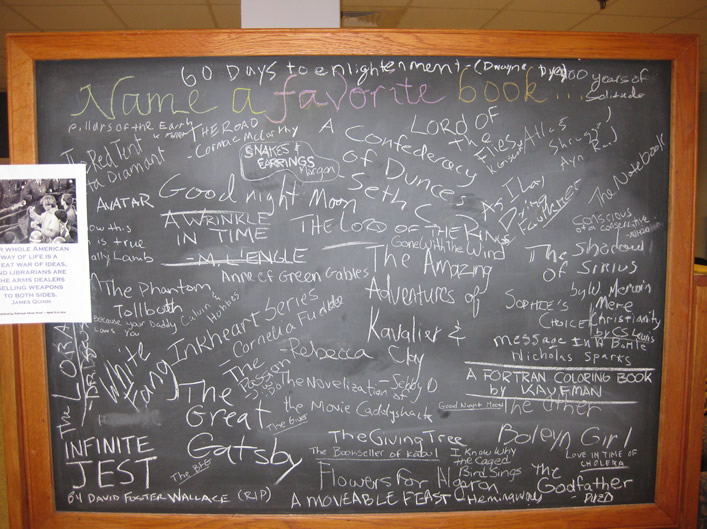 60 Days to enlightenment - (Dwayne Dyer)
100 years of
Solitude
Name a favorite book...
Pillars of the Earth
THE ROAD
- Cormac McCarthy
The Red Tent
Diamant
SNAKES &
EARRINGS
A
Confederacy
of Dunces
LORD OF
The
Flies
Atlas
Shrugged
Ayn Rand
The Notebook
AVATAR
Goodnight Moon
Seth
As I Lay
Dying
Faulkner
A WRINKLE
IN TIME
- M. L'ENGLE
THE LORD OF THE RINGS
Gone With the Wind
Conscious
of a conservative
know this
is true
Wally Lamb
R WHOLE AMERICAN
WAY OF LIFE IS A
EAT WAR OF IDEAS,
ND LIBRARIANS ARE
HE ARMS DEALERS
SELLING WEAPONS
TO BOTH SIDES.
JAMES QUINN
Anne of Green Gables
The Amazing
Adventures of
Kavalier &
Clay
The Shadow
of Sirius
by W. Merwin
The Phantom
Tollboth
Calvin &
Hobbes
Because your Daddy
Loves You
SOPHIE'S
CHOICE
Mere
Christianity
by CS Lewis
Inkheart Series
- Cornelia Funke
message in A Bottle
Nicholas Sparks
The LORAX
White
Fang
- Rebecca
The
Passion
The Novelization of
the Movie Caddyshack
A FORTRAN COLORING BOOK
by KAUFMAN
The
Great
Gatsby
The Giver
Good Night Moon
The Other
Boleyn Girl
INFINITE
JEST
BY DAVID FOSTER WALLACE (RIP)
The BFG
The Giving Tree
The Bookseller of Kabul
I Know Why
the Caged
Bird Sings
LOVE IN TIME OF
CHOLERA
Flowers for Algeron
The
Godfather
A MOVEABLE FEAST - Hemingway